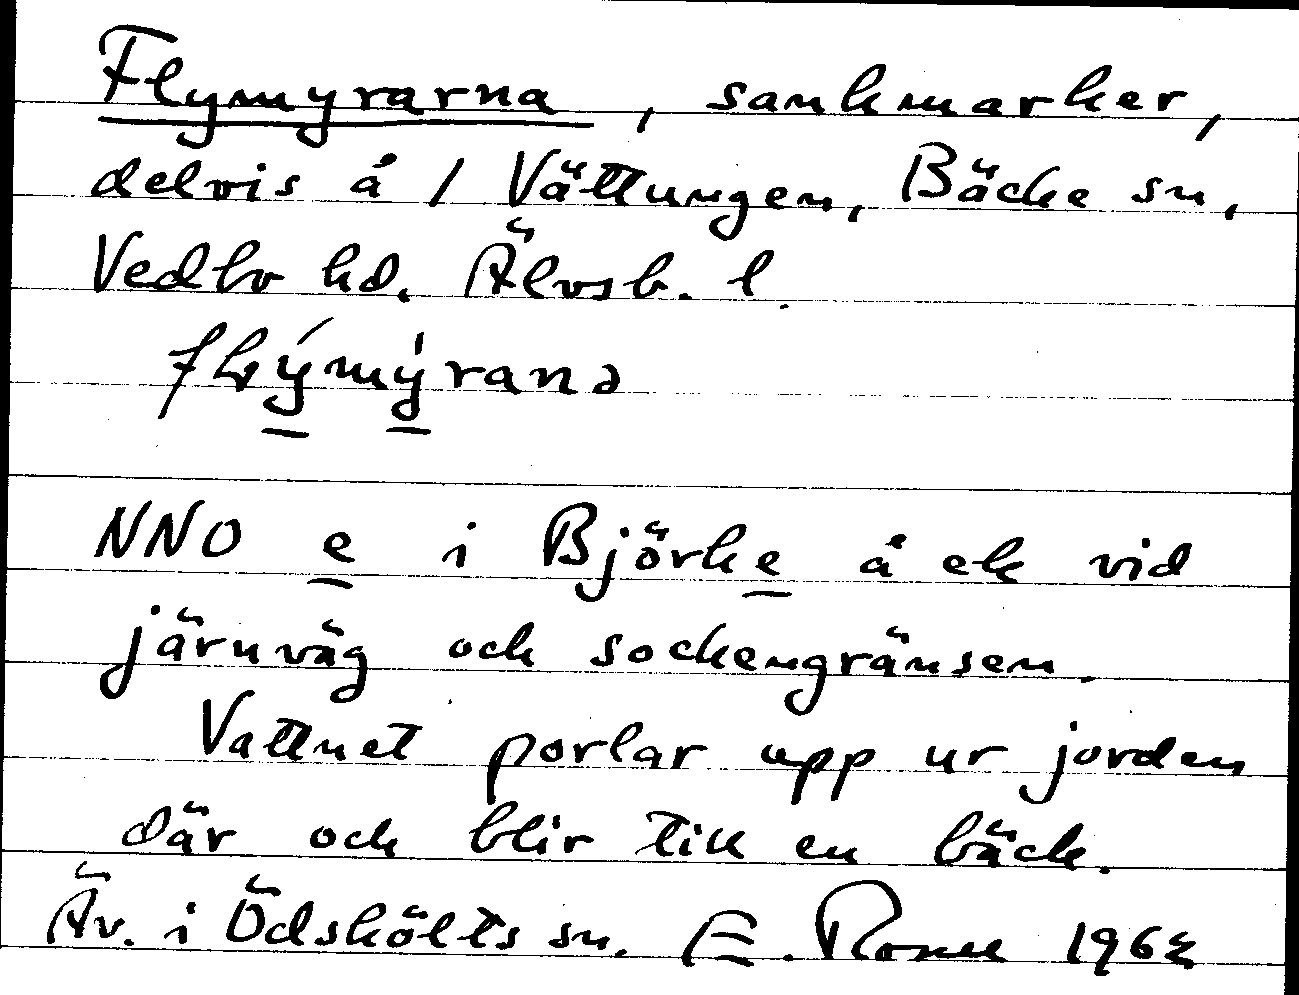 Flymyrarna, sankmarker,
delvis å 1 Vättungen, Bäcke sn,
Vedbo hd. Älvsb. l.
NNO e i Björke å ek vid
järnväg och sockengränsen.
Vattnet porlar upp ur jorden
där och blir till en bäck.
Äv. i Ödskölts sn. E.